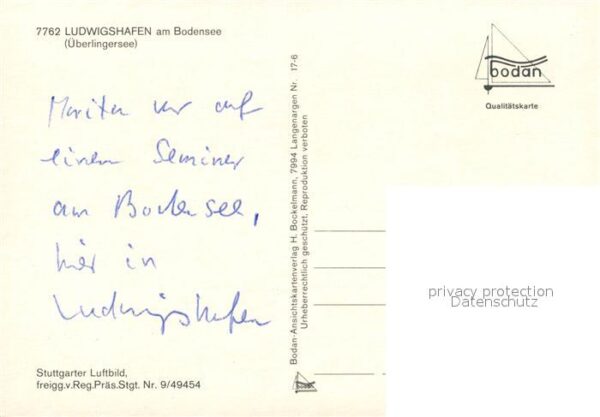 7762 LUDWIGSHAFEN am Bodensee
(Überlingersee)
Marita war auf
einem Seminar
am Bodensee,
hier in
Ludwigshafen
Stuttgarter Luftbild,
freigg.v.Reg.Präs.Stgt. Nr. 9/49454
Bodan-Ansichtskartenverlag H. Bockelmann, 7994 Langenargen Nr. 17-6
Urheberrechtlich geschützt. Reproduktion verboten
bodan
bodan
Qualitätskarte
privacy protection
Datenschutz